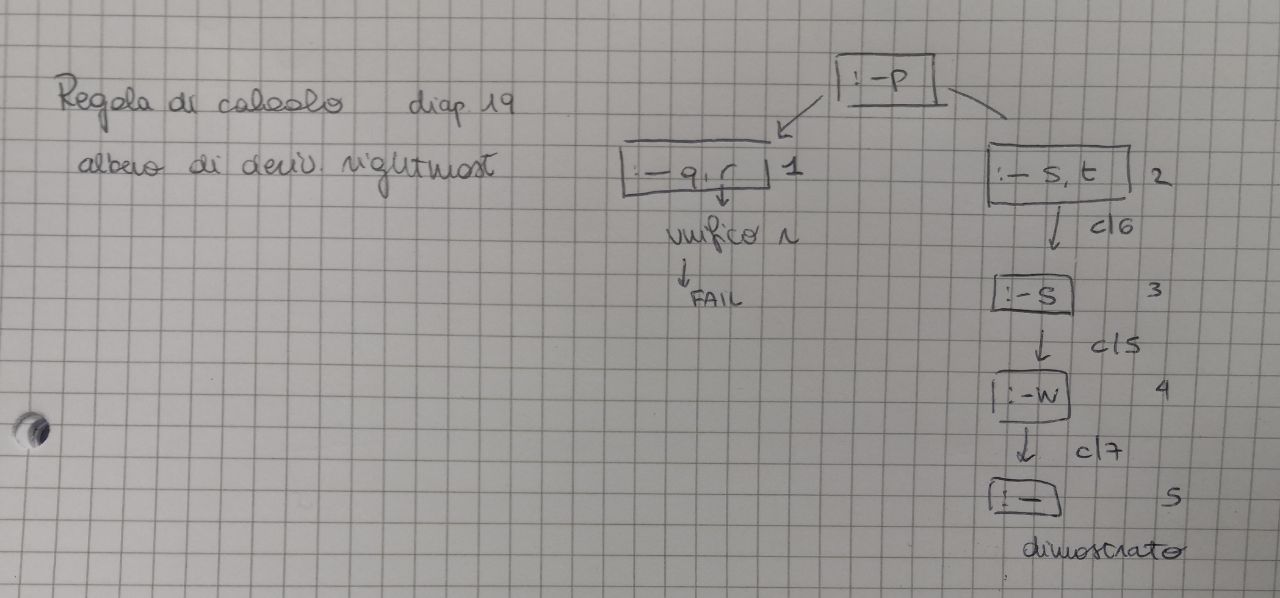 :-P
Regola di calcolo diap. 19
albero di deriv. rightmost
:- q, r 1
:- s, t 2
unifico r
cl6
FAIL
:-S 3
cl5
:-W 4
cl7
:- 5
dimostrato